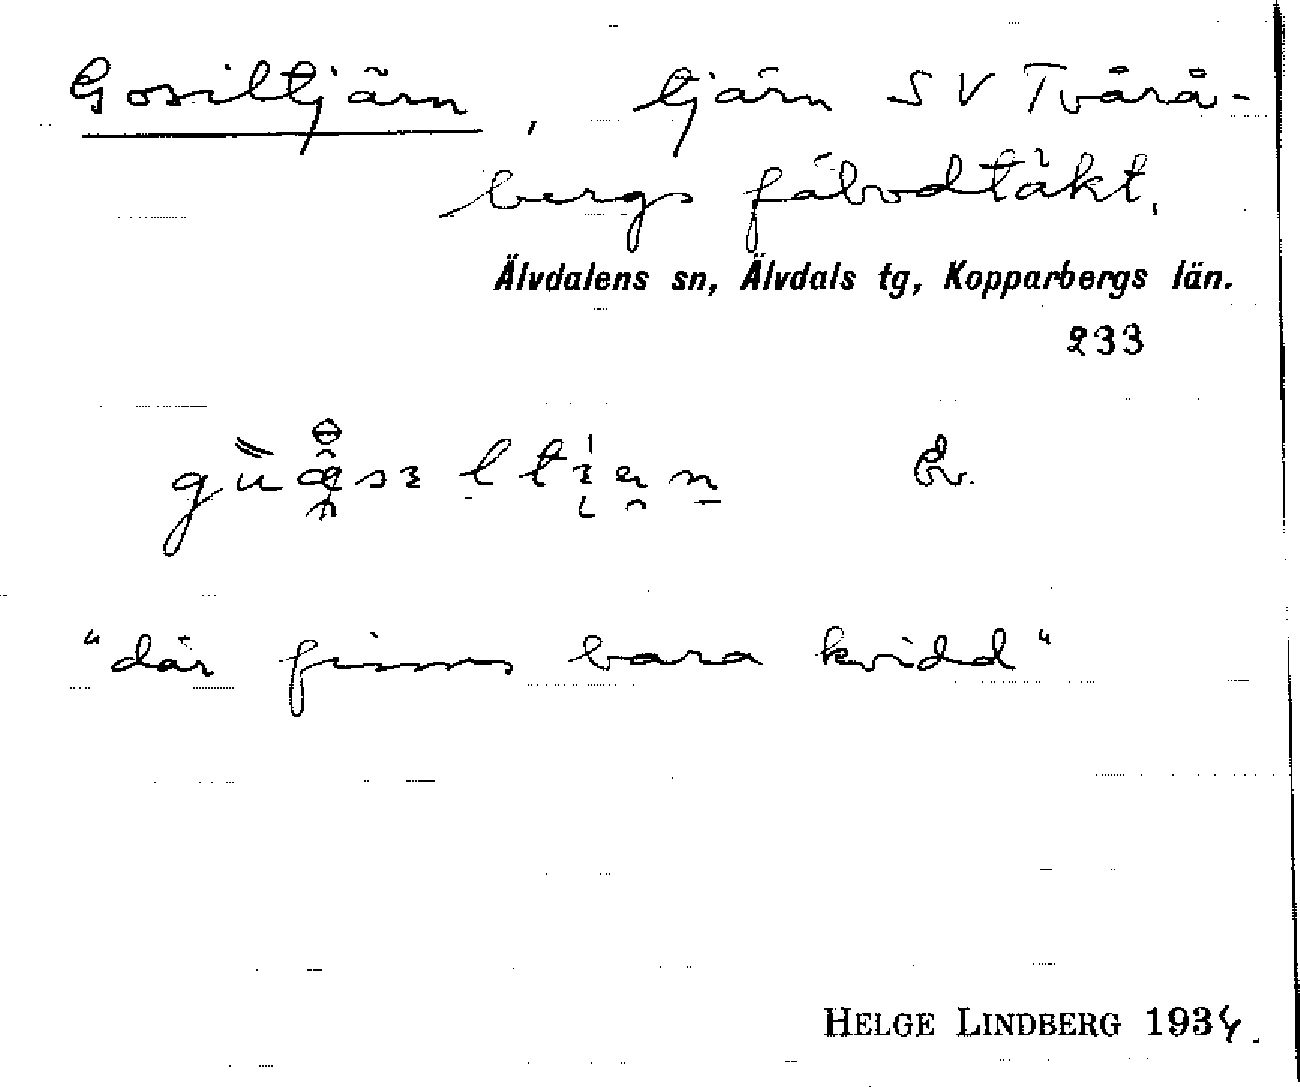 Gosiltjärn, tjärn SV Tvärå-
bergs fäbodtäkt.
Älvdalens sn, Älvdals tg, Kopparbergs län.
233
"där finns bara kvidd"
HELGE LINDBERG 1934.